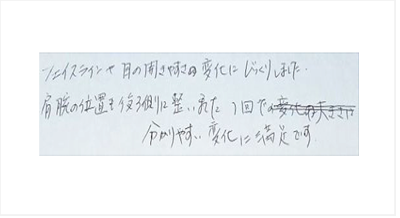 フェイスラインや目の開きやすさの変化にびっくりしました.
肩腕の位置も後ろ側に整い、また1回での
分かりやすい変化に満足です.